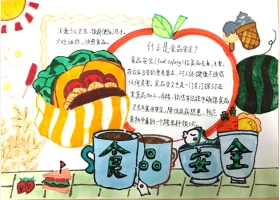 注意个人卫生，饭前便后洗手，
少吃油炸、烧烤食品。
什么是食品安全？
食品安全(food safety)指食品无毒、无害，
符合应当有的营养要求，对人体健康不造成
任何危害。食品安全也是一门专门探讨在
食品加工、存储、销售等过程中确保食品
卫生及食用安全，降低疾病隐患，防范
食物中毒的一个跨学科领域。
食品安全